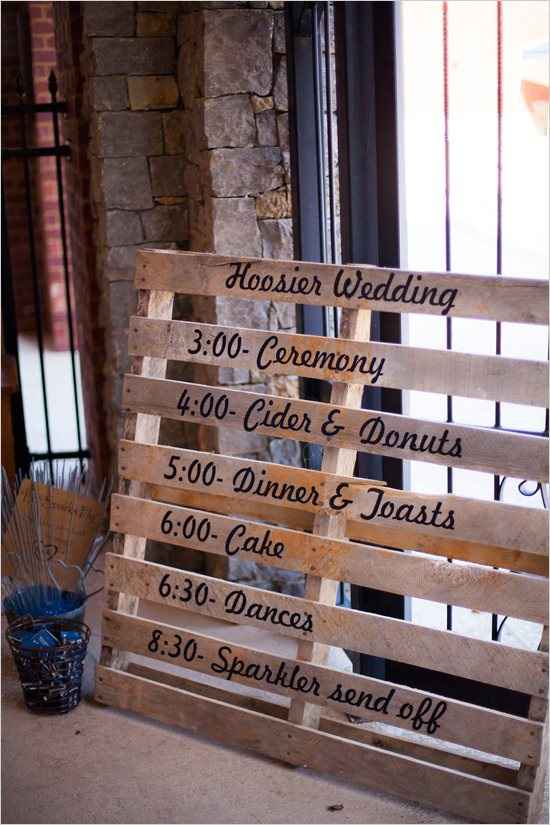 Hoosier Wedding
3:00- Ceremony
4:00- Cider & Donuts
5:00- Dinner & Toasts
6:00- Cake
6:30- Dances
8:30- Sparkler send off